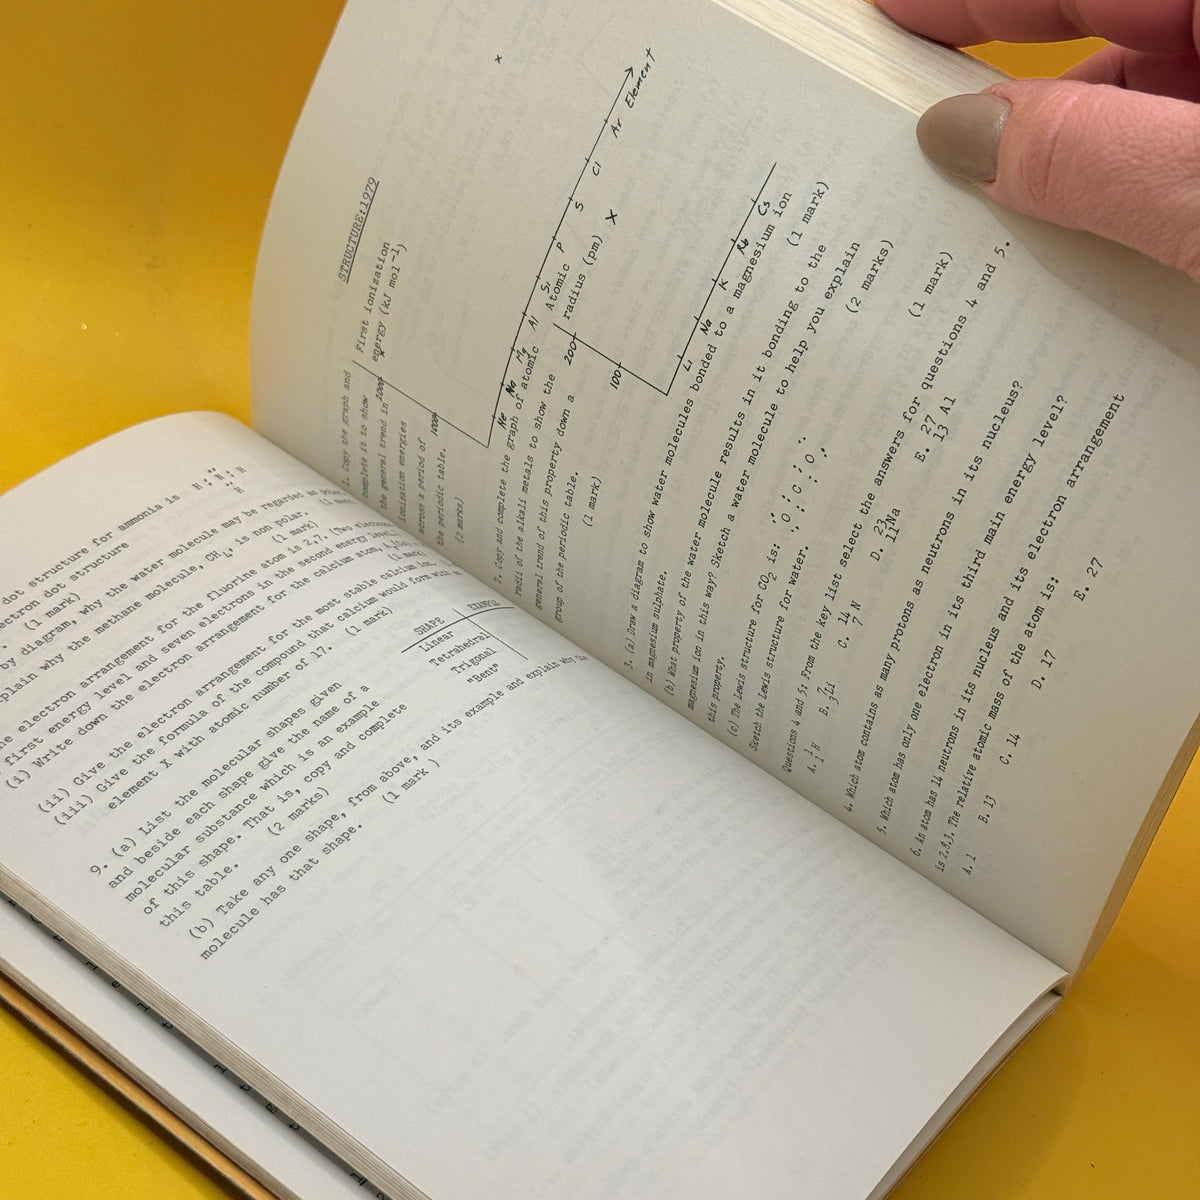 dot structure for ammonia is H : N : H
H
ectron dot structure
(1 mark)
by diagram, why the water molecule may be regarded as
plain why the methane molecule, CH4, is non polar.
(1 mark)
e electron arrangement for the fluorine atom is 2,7. (Two electrons
first energy level and seven electrons in the second energy level
(i) Write down the electron arrangement for the calcium atom,
(1 mark)
(ii) Give the electron arrangement for the most stable calcium ion.
(iii) Give the formula of the compound that calcium would form with
element X with atomic number of 17. (1 mark)
9. (a) List the molecular shapes given
and beside each shape give the name of a
molecular substance which is an example
of this shape. That is, copy and complete
this table. (2 marks)
SHAPE EXAMPLE
Linear
Tetrahedral
Trigonal
"Bent"
(b) Take any one shape, from above, and its example and explain why the
molecule has that shape. (1 mark )
STRUCTURE:1979
1. Copy the graph and
complete it to show
the general trend in
ionisation energies
across a period of
the periodic table.
(2 marks)
First ionization
energy (kJ mol-1)
2000
1000
x
x
Ne Na Mg Al Si P S Cl Ar Element
2. Copy and complete the graph of atomic
radii of the alkali metals to show the
general trend of this property down a
group of the periodic table.
(1 mark)
Atomic
radius (pm)
200
100
X
Li Na K Rb Cs
3. (a) Draw a diagram to show water molecules bonded to a magnesium ion
in magnesium sulphate. (1 mark)
(b) What property of the water molecule results in it bonding to the
magnesium ion in this way? Sketch a water molecule to help you explain
this property. (2 marks)
(c) The Lewis structure for CO2 is: :O::C::O:
Sketch the Lewis structure for water. (1 mark)
Questions 4 and 5: From the key list select the answers for questions 4 and 5.
A. 1 1 H B. 7 3 Li C. 14 7 N D. 23 11 Na E. 27 13 Al
4. Which atom contains as many protons as neutrons in its nucleus?
5. Which atom has only one electron in its third main energy level?
6. An atom has 14 neutrons in its nucleus and its electron arrangement
is 2,8,3. The relative atomic mass of the atom is:
A. 1 B. 13 C. 14 D. 17 E. 27